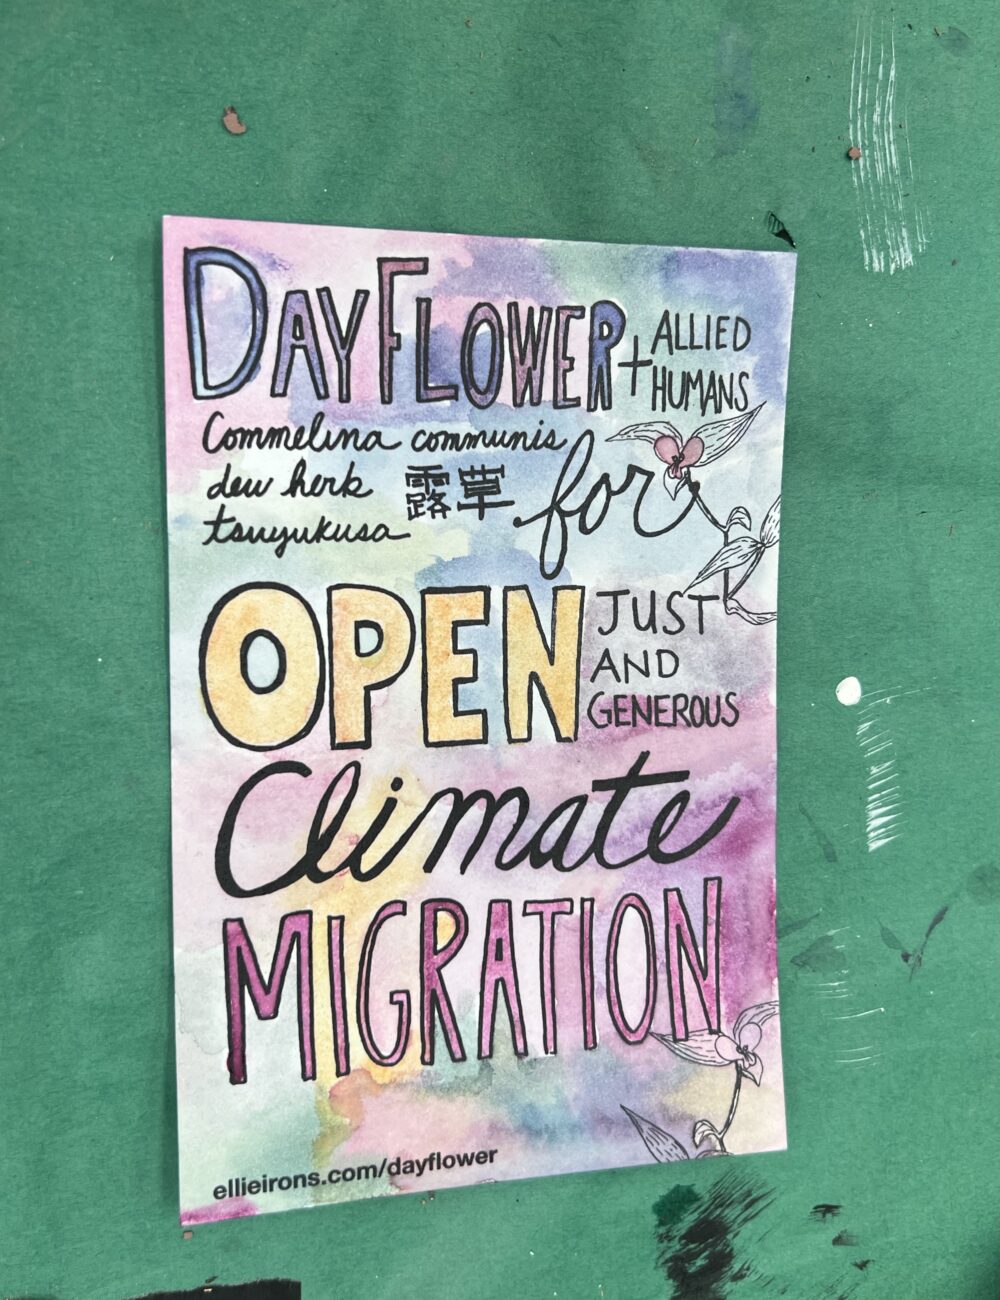 DAYFLOWER + ALLIED HUMANS
Commelina communis
dew herb 露草
tsuyukusa
for
OPEN JUST AND GENEROUS
Climate
MIGRATION
ellieirons.com/dayflower